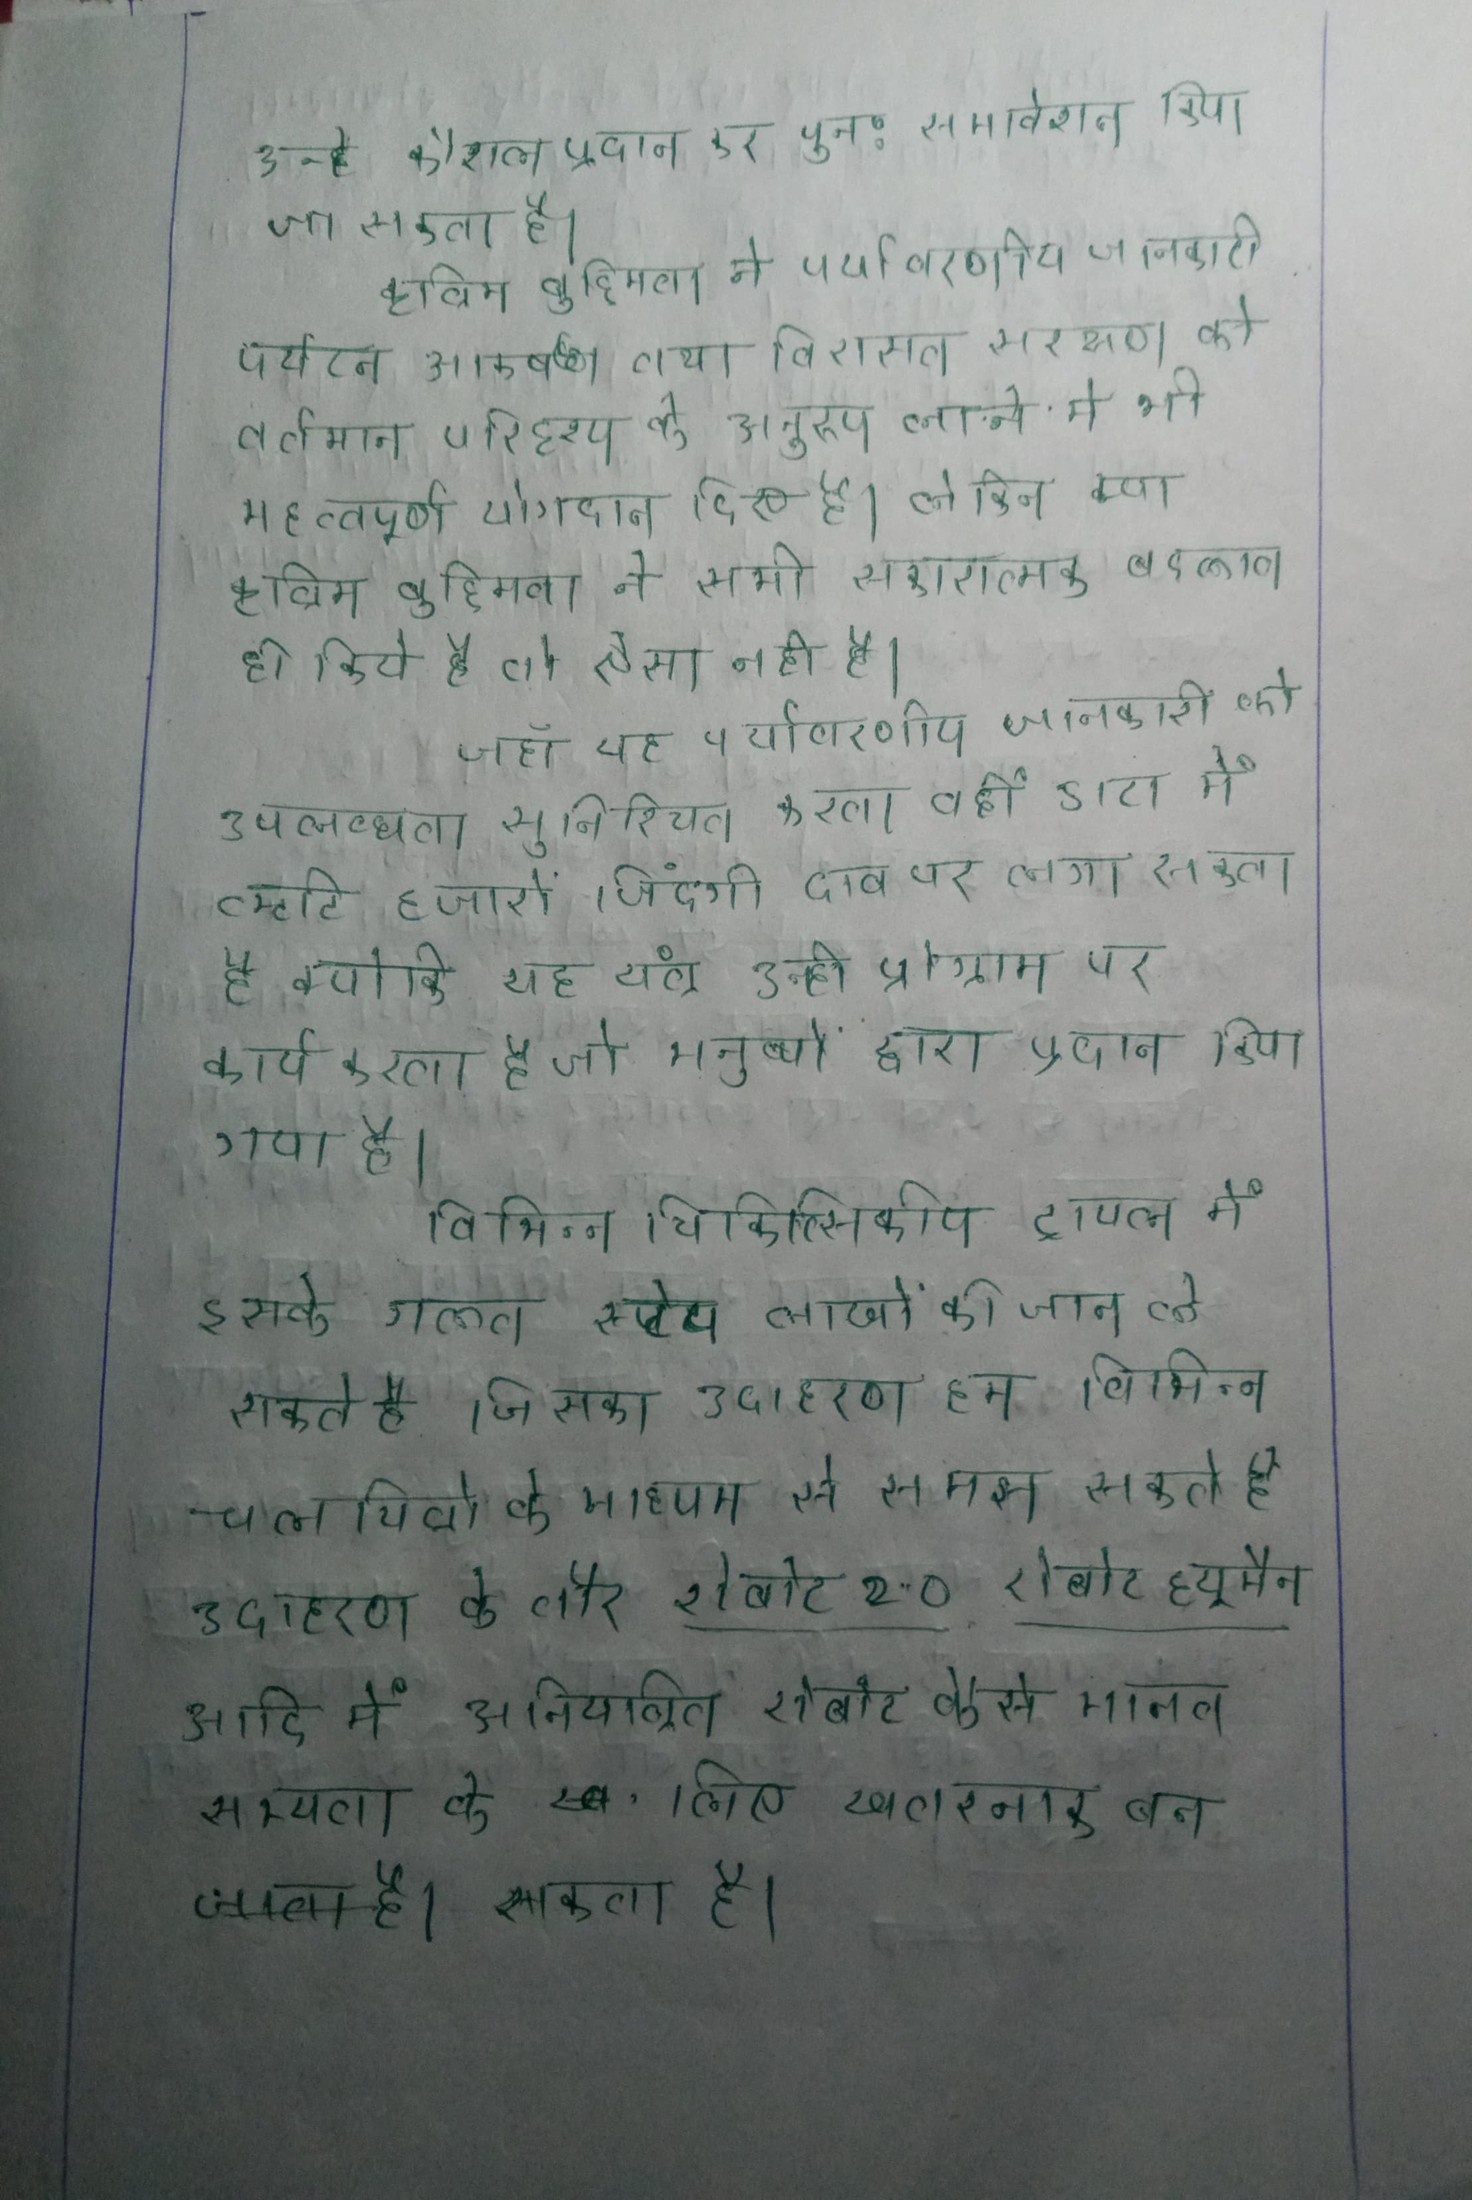 उन्हे कौशल प्रदान कर पुनः समावेशन किया
जा सकता है।
कृत्रिम बुद्दिमता ने पर्यावरणीय जानकारी
पर्यटन आकर्षण तथा विरासत सरक्षण को
वर्तमान परिदृश्य के अनुरूप लाने मे भी
महत्वपूर्ण योगदान दिए है। लेकिन क्या
कृत्रिम बुद्दिमता ने सभी सकारात्मक बदलाव
ही किये है तो ऐसा नही है।
जहाँ यह पर्यावरणीय जानकारी को
उपलब्धता सुनिश्चित करता वहीं डाटा में
हजारों जिंदगी दाव पर लगा सकता
है क्योकि यह यंत्र उन्ही प्रोग्राम पर
कार्य करता है जो मनुष्यों द्वारा प्रदान किया
गया है।
विभिन्न चिकित्सिकीय ट्रायल में
इसके गलत लाखों की जान ले
सकते है जिसका उदाहरण हम विभिन्न
चलचित्रो के माध्यम से समझ सकते है
उदाहरण के तौर रोबोट 2.0 रोबोट ह्यूमैन
आदि में अनियंत्रित रोबोट कैसे मानव
सभ्यता के लिए खतरनाक बन
जाता है। सकता है।